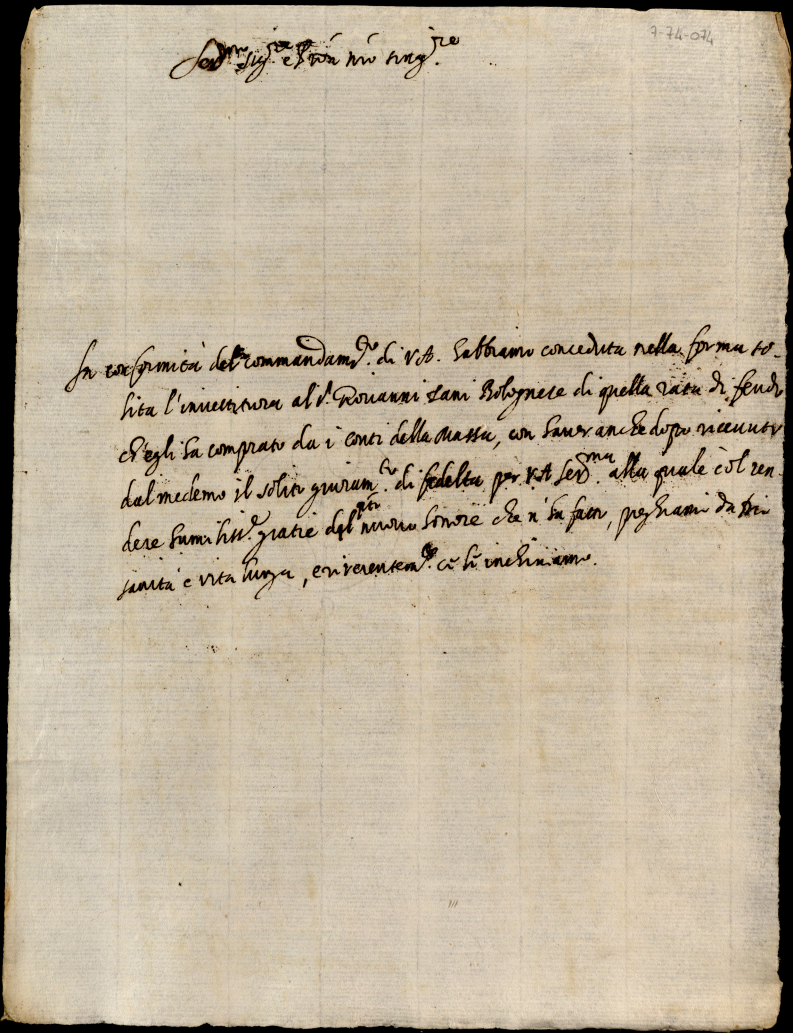 7-74-074
Ser.mo Sig.re e P'rōn mio sing.re
In conformità del commandam.to di V.A. habbiamo conceduta nella forma so-
lita l'inuestitura al S. Giouanni Lani Bolognese di quella rata di feudo
ch'egli ha comprato da i conti della Massa, con hauer anche dopo riceuuto
dal medemo il solito giuram.to di fedelta per V.A. Ser.ma alla quale col ren-
dere humiliss.e gratie del nuouo honore che n'ha fatto, preghiamo da Dio
sanità e vita lunga, e riuerentem.te ce le inchiniamo.